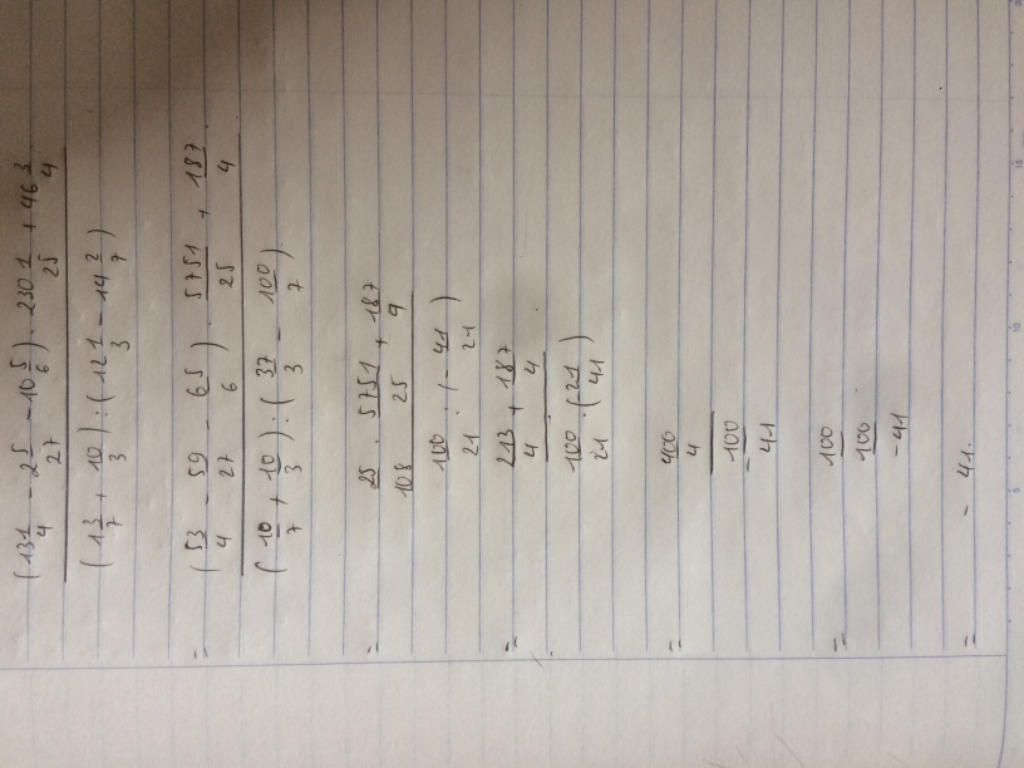 (13 1/4 - 2 5/27 - 10 5/6) . 230 1/25 + 46 3/4
(1 3/7 + 10/3) : (12 1/3 - 14 2/7)
= (53/4 - 59/27 - 65/6) . 5751/25 + 187/4
(10/7 + 10/3) : (37/3 - 100/7)
= 25/108 . 5751/25 + 187/4
100/21 : (-41/21)
= 213/4 + 187/4
100/21 . (21/41)
= 400/4
100/-41
= 100
100/-41
= - 41.